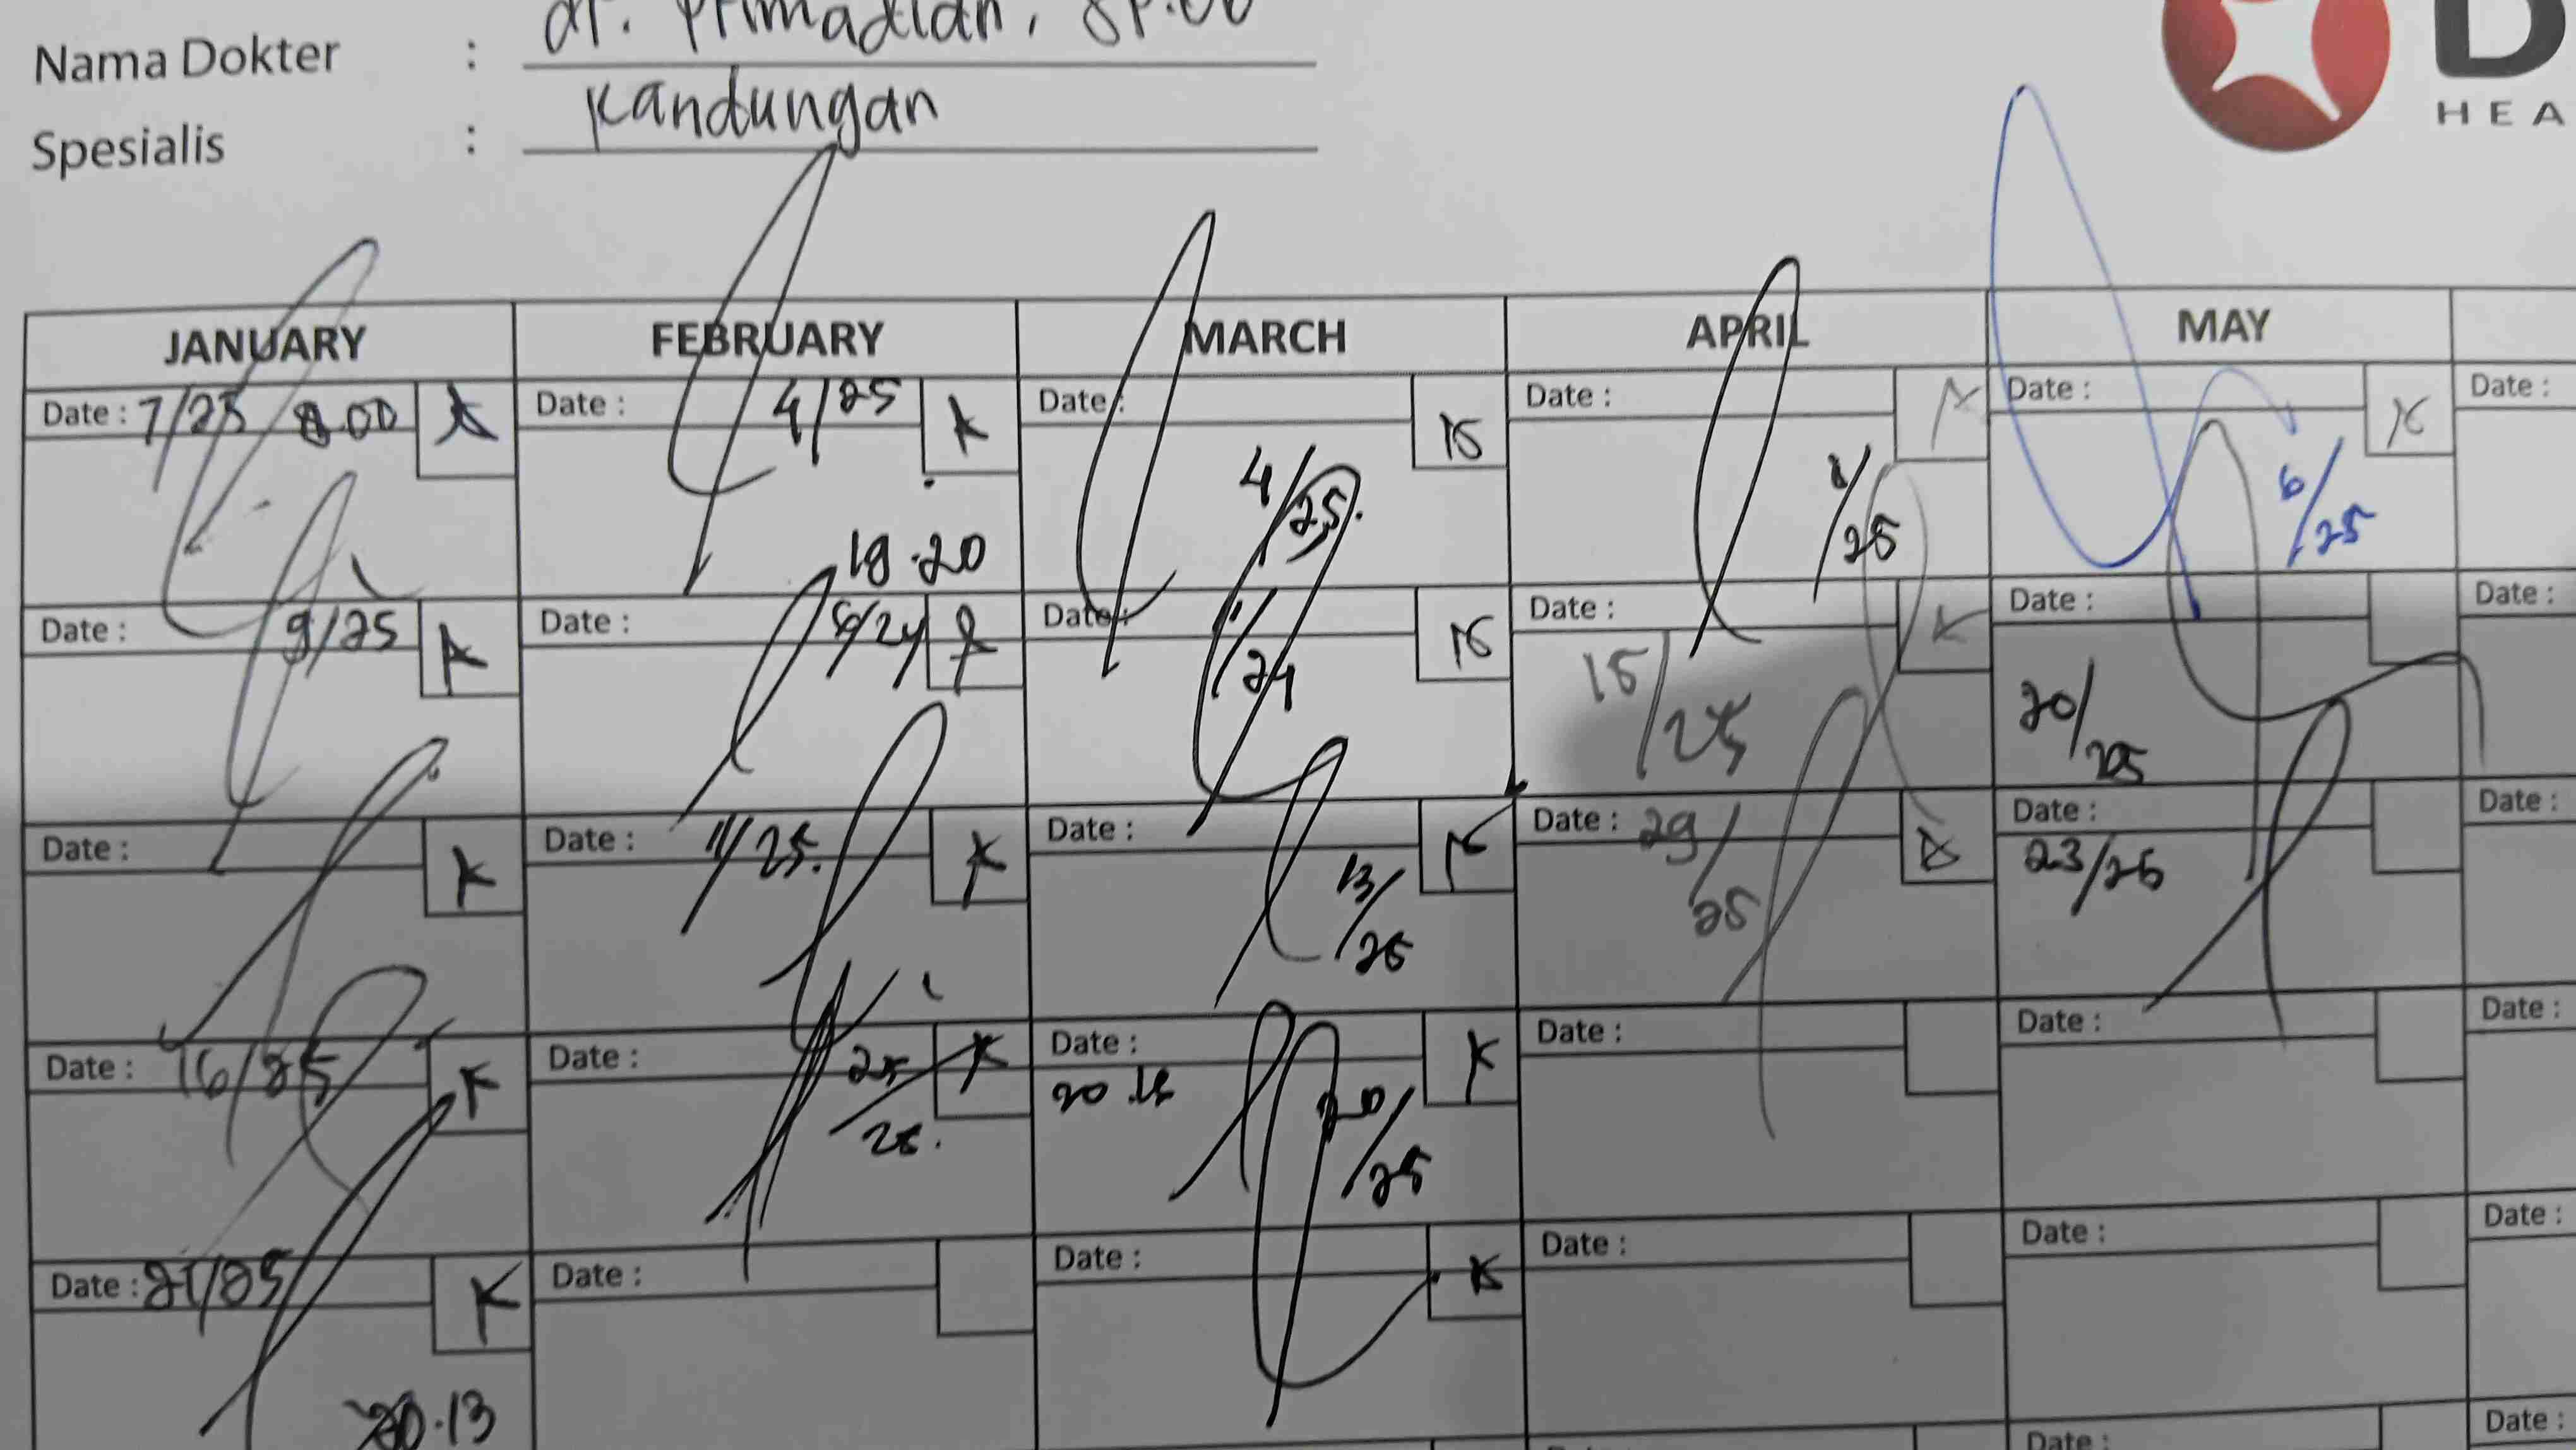 Nama Dokter : dr. Primadian, SP.OG
Spesialis : Kandungan
D
HEA
JANUARY FEBRUARY MARCH APRIL MAY
Date : 7/25 8.00 Date : 4/25 K Date : K Date : Date : K Date :
4/25. 8/25 6/25
19.20
Date : 9/25 K Date : 6/24 Date : K Date : K Date : Date :
11/24 15/25 20/25
Date : K Date : 11/25. K Date : K Date : 29/25 Date : Date :
13/25 23/25
Date : 16/25 K Date : 25/25. K Date : K Date : Date : Date :
20.15 20/25
Date : 21/25 K Date : Date : K Date : Date : Date :
20.13
Date : Date :